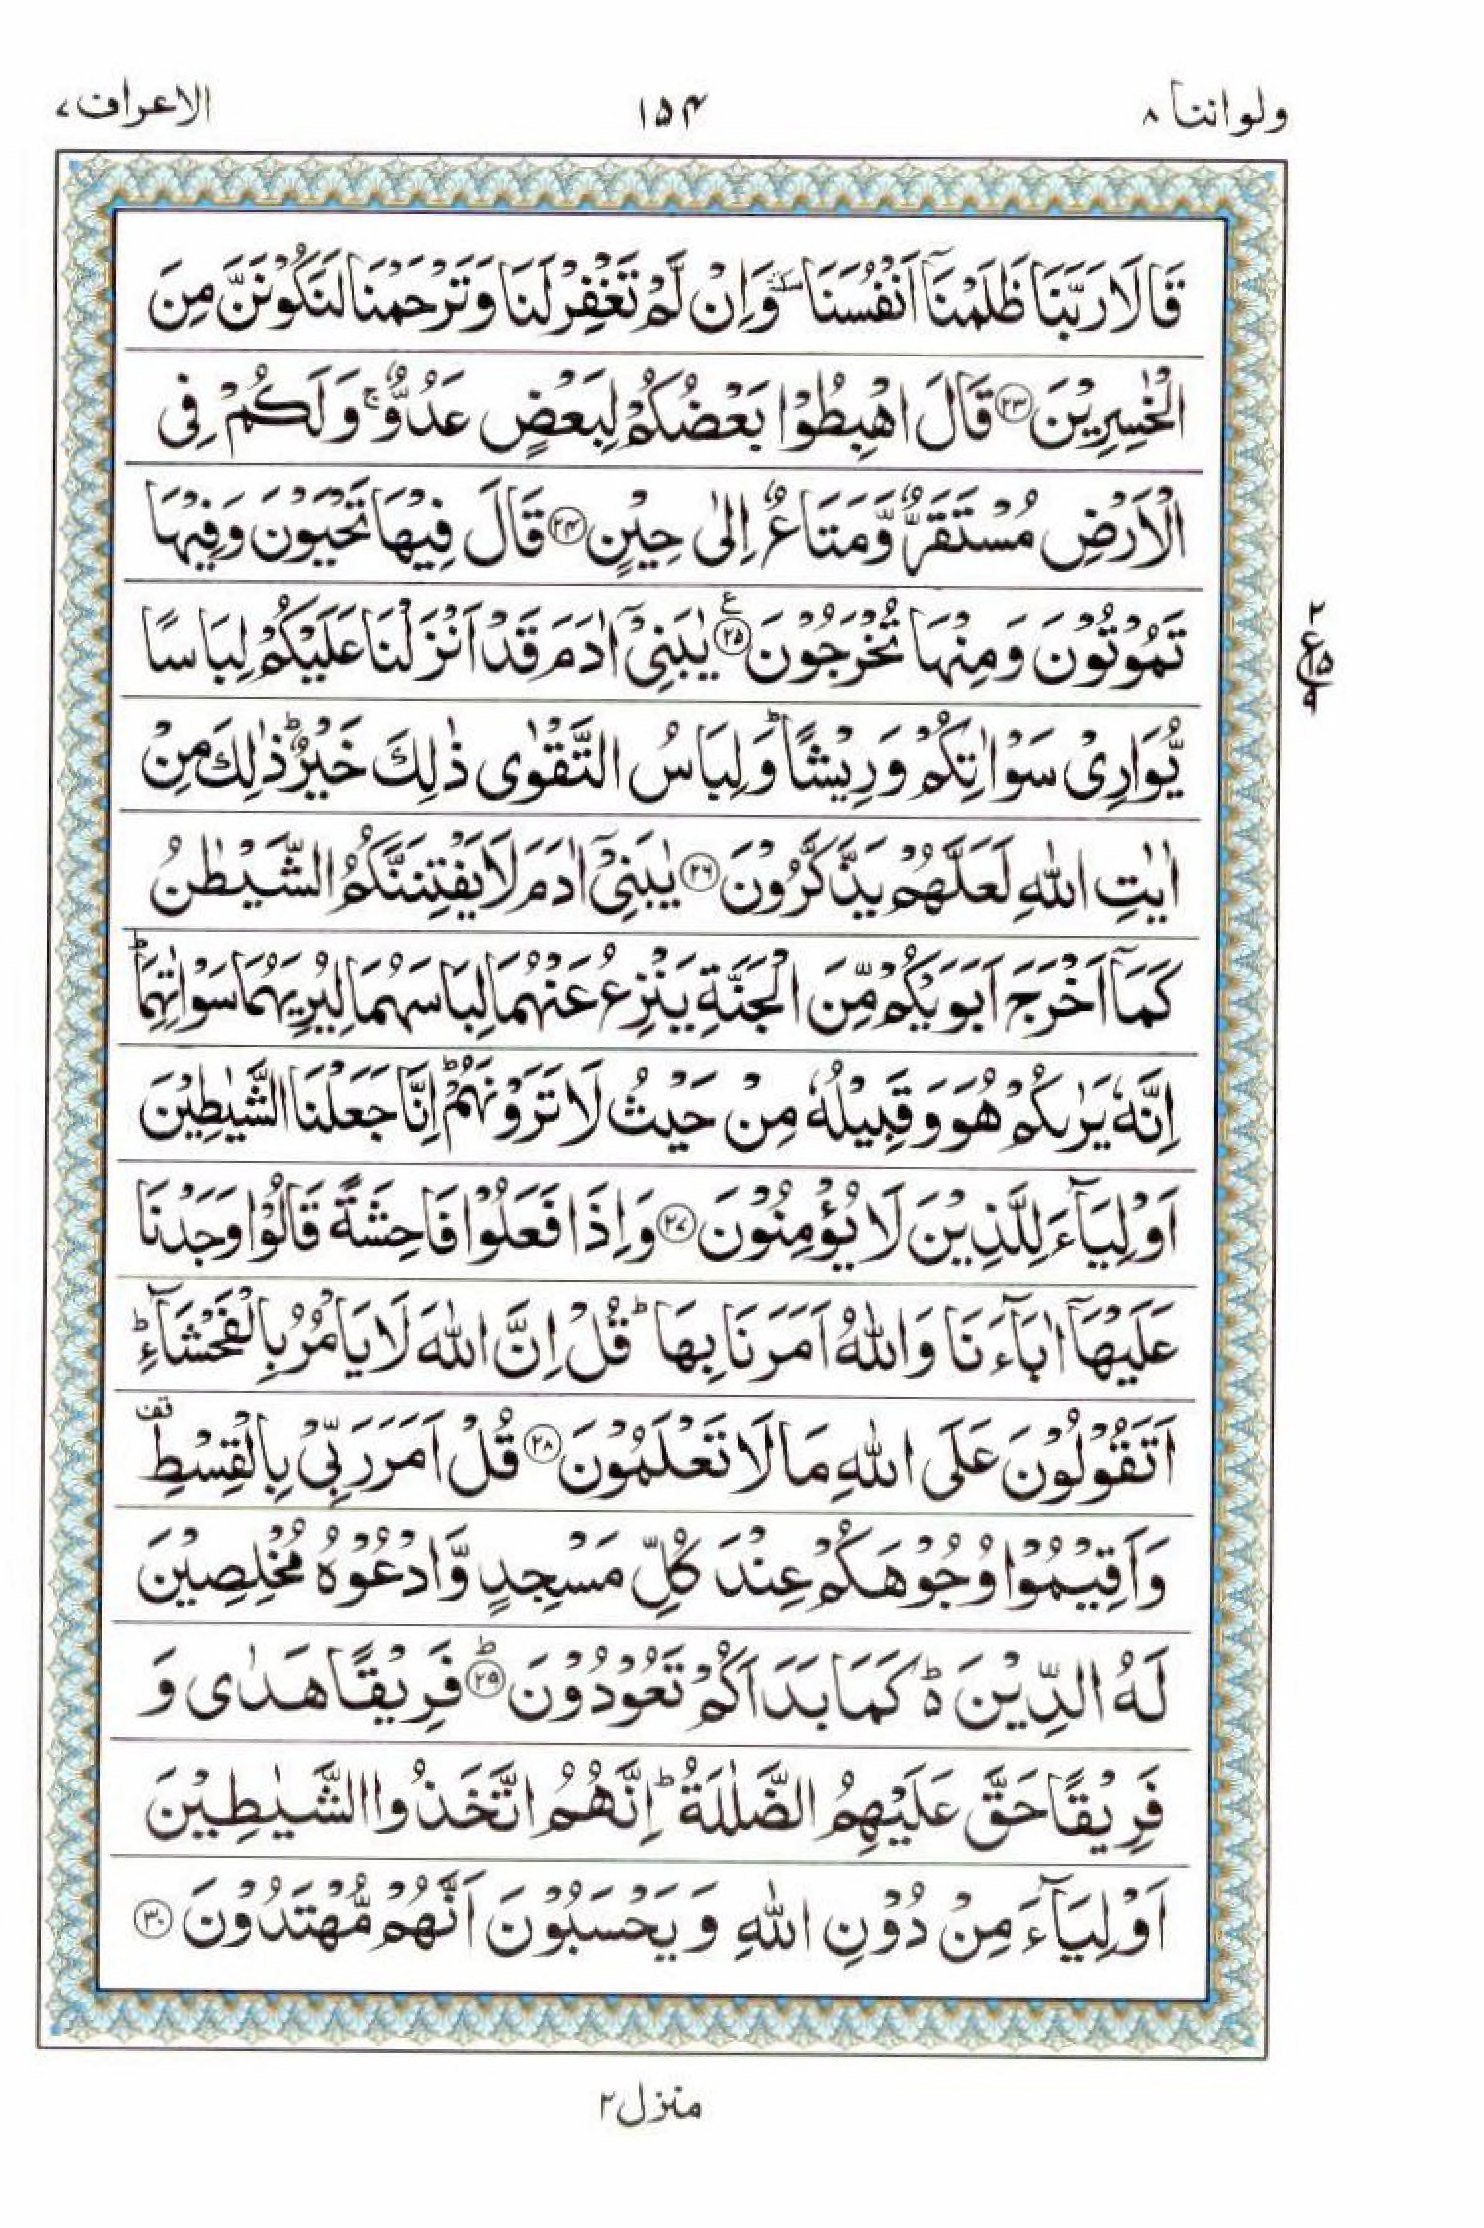 ولواننا ۸
۱۵۴
الاعراف ۷
قَالَا رَبَّنَا ظَلَمْنَآ اَنْفُسَنَا سكتة وَاِنْ لَّمْ تَغْفِرْ لَنَا وَتَرْحَمْنَا لَنَكُوْنَنَّ مِنَ
الْخٰسِرِيْنَ ۲۳ قَالَ اهْبِطُوْا بَعْضُكُمْ لِبَعْضٍ عَدُوٌّ ۚ وَلَكُمْ فِى
الْاَرْضِ مُسْتَقَرٌّ وَّمَتَاعٌ اِلٰى حِيْنٍ ۲۴ قَالَ فِيْهَا تَحْيَوْنَ وَفِيْهَا
تَمُوْتُوْنَ وَمِنْهَا تُخْرَجُوْنَ ۲۵ ع يٰبَنِىْٓ اٰدَمَ قَدْ اَنْزَلْنَا عَلَيْكُمْ لِبَاسًا
۲
ع
۱۵
۹
يُّوَارِىْ سَوْاٰتِكُمْ وَرِيْشًا ؕ وَلِبَاسُ التَّقْوٰى ذٰلِكَ خَيْرٌ ؕ ذٰلِكَ مِنْ
اٰيٰتِ اللّٰهِ لَعَلَّهُمْ يَذَّكَّرُوْنَ ۲۶ يٰبَنِىْٓ اٰدَمَ لَا يَفْتِنَنَّكُمُ الشَّيْطٰنُ
كَمَآ اَخْرَجَ اَبَوَيْكُمْ مِّنَ الْجَنَّةِ يَنْزِعُ عَنْهُمَا لِبَاسَهُمَا لِيُرِيَهُمَا سَوْاٰتِهِمَا ؕ
اِنَّهٗ يَرٰىكُمْ هُوَ وَقَبِيْلُهٗ مِنْ حَيْثُ لَا تَرَوْنَهُمْ ؕ اِنَّا جَعَلْنَا الشَّيٰطِيْنَ
اَوْلِيَآءَ لِلَّذِيْنَ لَا يُؤْمِنُوْنَ ۲۷ وَاِذَا فَعَلُوْا فَاحِشَةً قَالُوْا وَجَدْنَا
عَلَيْهَآ اٰبَآءَنَا وَاللّٰهُ اَمَرَنَا بِهَا ؕ قُلْ اِنَّ اللّٰهَ لَا يَاْمُرُ بِالْفَحْشَآءِ ؕ
اَتَقُوْلُوْنَ عَلَى اللّٰهِ مَا لَا تَعْلَمُوْنَ ۲۸ قُلْ اَمَرَ رَبِّىْ بِالْقِسْطِ قف
وَاَقِيْمُوْا وُجُوْهَكُمْ عِنْدَ كُلِّ مَسْجِدٍ وَّادْعُوْهُ مُخْلِصِيْنَ
لَهُ الدِّيْنَ ە ؕ كَمَا بَدَاَكُمْ تَعُوْدُوْنَ ؕ ۲۹ فَرِيْقًا هَدٰى وَ
فَرِيْقًا حَقَّ عَلَيْهِمُ الضَّلٰلَةُ ؕ اِنَّهُمُ اتَّخَذُوا الشَّيٰطِيْنَ
اَوْلِيَآءَ مِنْ دُوْنِ اللّٰهِ وَيَحْسَبُوْنَ اَنَّهُمْ مُّهْتَدُوْنَ ۳۰
منزل ۲